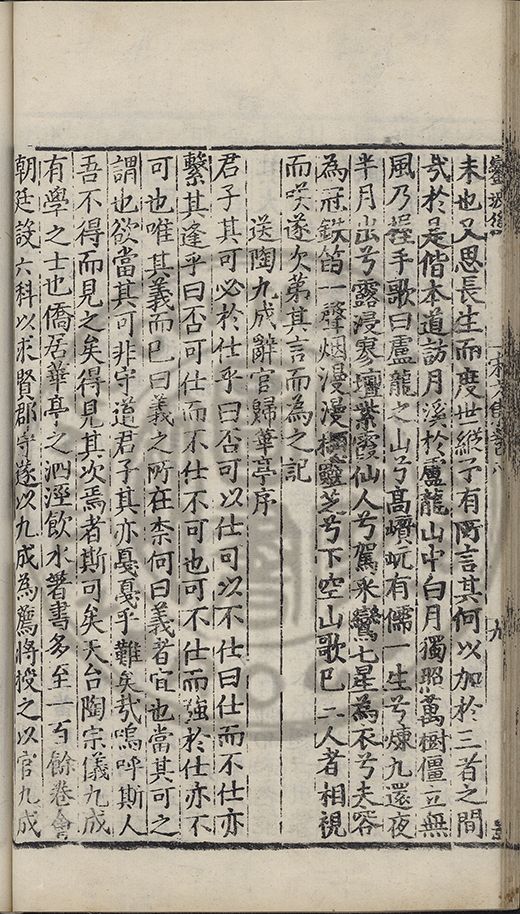 未也又思長生而度世縱子有所言其何以加於三者之間
㢤於是偕本道訪月溪於盧龍山中白月獨照萬樹僵立無
風乃握手歌曰盧龍之山兮高巑岏有儒一生兮煉九還夜
半月出兮露浸寥壇紫霞仙人兮駕采鸞七星為衣兮夫容
為冠鉄笛一聲烟漫漫擷靈芝兮下空山歌已二人者相視
而咲遂次第其言而為之記
送陶九成辭官歸華亭序
君子其可必於仕乎曰否可以仕可以不仕曰仕而不仕亦
繫其逢乎曰否可仕而不仕不可也可不仕而強於仕亦不
可也唯其義而已曰義之所在柰何曰義者宜也當其可之
謂也欲當其可非守道君子其亦戛戛乎難矣㢤嗚呼斯人
吾不得而見之矣得見其次焉者斯可矣天台陶宗儀九成
有學之士也僑居華亭之泗涇飲水著書多至一百餘卷會
朝廷設六科以求賢郡守遂以九成為薦將授之以官九成
九